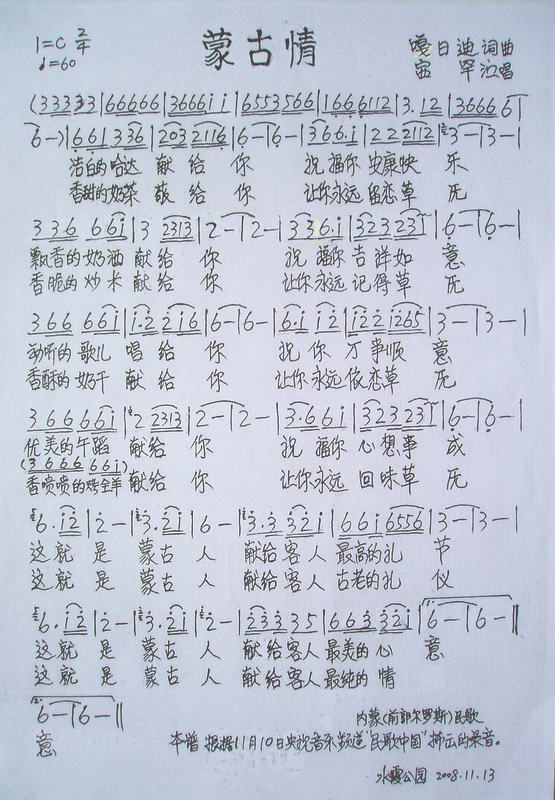 1=C 2/4
♩=60
蒙古情
嘎日迪 词曲
演唱
(33333|66666|3666i i|6553566|1666112|3. 12|36666
6-)|661336|2032116|6-|6-|366.i|222112|3-|3-|
洁白的哈达 献给 你 祝福你 安康快 乐
香甜的奶茶 献给 你 让你永远 留恋草 原
336 66i|3 2313|2-|2-|336.i|323231|6-|6-|
飘香的奶酒 献给 你 祝福你 吉祥如 意
香脆的炒米 献给 你 让你永远 记得草 原
366 66i|i.2 2i6|6-|6-|6.i i2|i22 i265|3-|3-|
动听的歌儿 唱给 你 祝你 万事顺 意
香酥的奶干 献给 你 让你永远 依恋草 原
366 66i|2 2313|2-|2-|3.66i|323231|6-|6-|
优美的午蹈 献给 你 祝福你 心想事 成
(3666 66i)
香喷喷的烤全羊 献给 你 让你永远 回味草 原
6. i2|2-|3. 2i|6-|3.3 32i|66i 6556|3-|3-|
这就 是 蒙古 人 献给客人 最高的礼 节
这就 是 蒙古 人 献给客人 古老的礼 仪
6. i2|2-|3. 2i|2-|23335|663 32i|6-|6-||
这就 是 蒙古 人 献给客人 最美的心 意
这就 是 蒙古 人 献给客人 最纯的 情
6-|6-||
意
内蒙(前郭尔罗斯)民歌
本谱 根据11月10日央视音乐频道"民歌中国"播出的录音。
水霞公园 2008.11.13